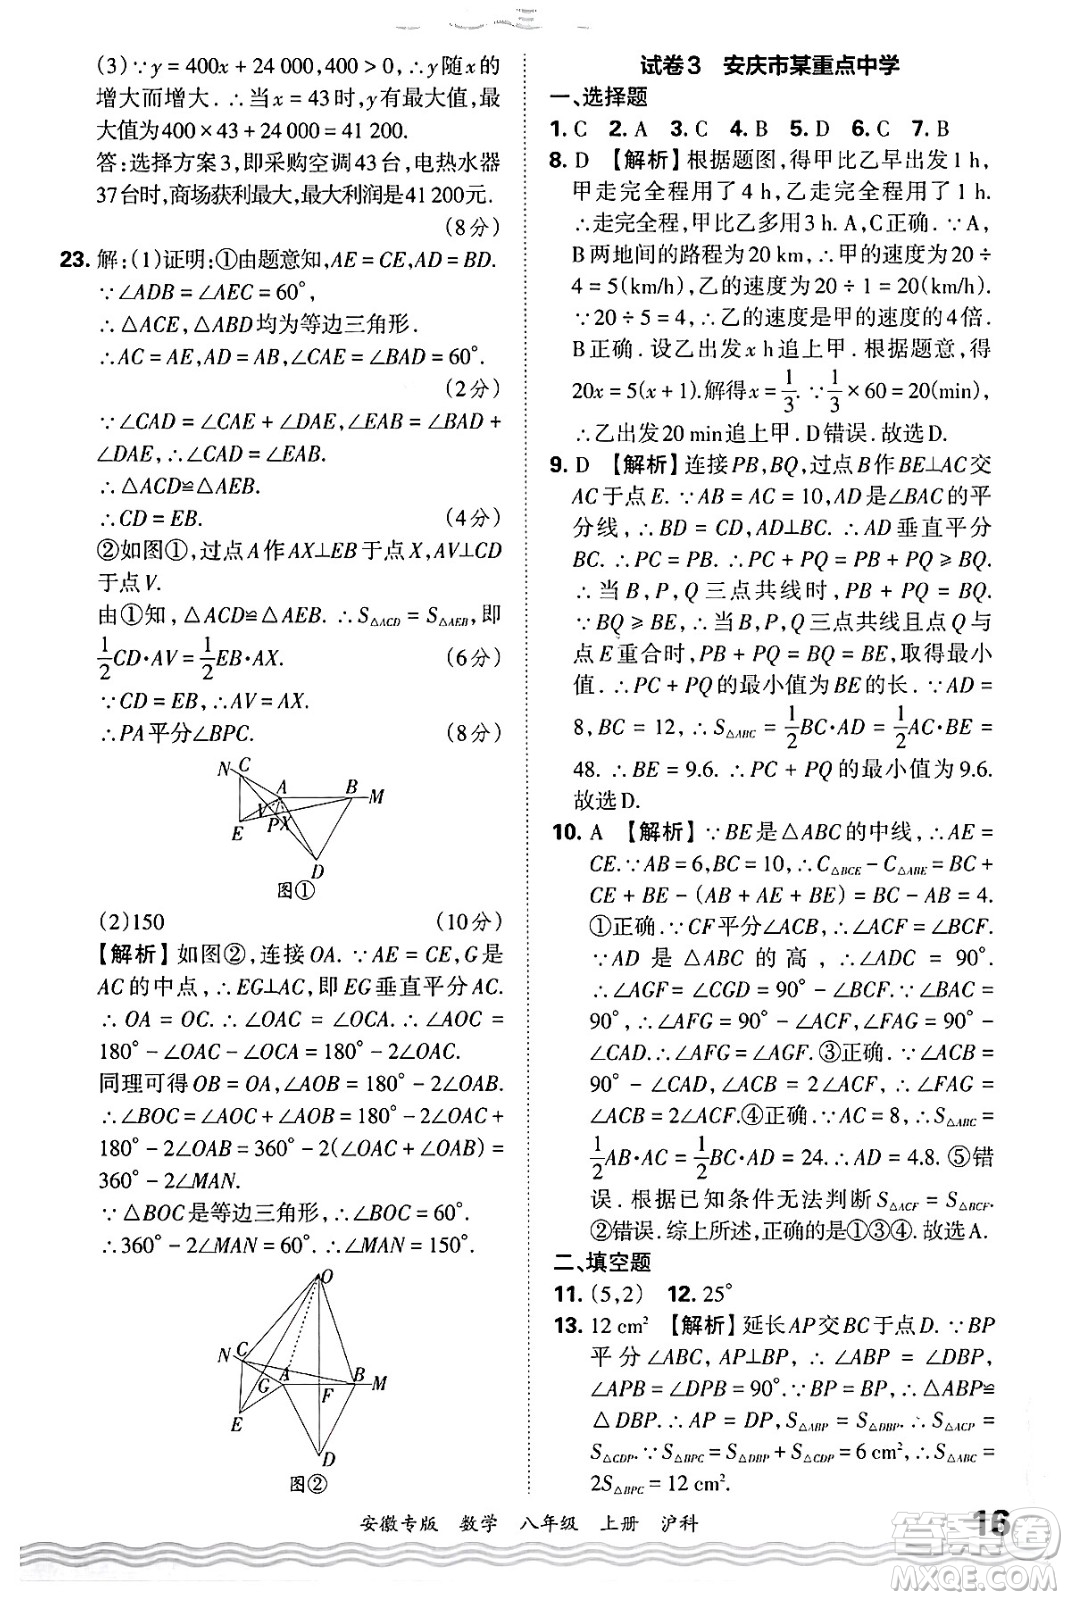 (3)∵y = 400x + 24 000,400 > 0,∴y随x的
增大而增大. ∴当x = 43时,y有最大值,最
大值为400 × 43 + 24 000 = 41 200.
答:选择方案3,即采购空调43台,电热水器
37台时,商场获利最大,最大利润是41 200元.
(8分)
23. 解:(1)证明:①由题意知,AE = CE,AD = BD.
∵∠ADB = ∠AEC = 60°,
∴△ACE,△ABD均为等边三角形.
∴AC = AE,AD = AB,∠CAE = ∠BAD = 60°.
(2分)
∵∠CAD = ∠CAE + ∠DAE,∠EAB = ∠BAD +
∠DAE,∴∠CAD = ∠EAB.
∴△ACD≌△AEB.
∴CD = EB. (4分)
②如图①,过点A作AX⊥EB于点X,AV⊥CD
于点V.
由①知,△ACD≌△AEB. ∴S△ACD = S△AEB,即
1/2 CD·AV = 1/2 EB·AX. (6分)
∵CD = EB,∴AV = AX.
∴PA平分∠BPC. (8分)
N C A B M
V
E P X
D
图①
(2)150 (10分)
【解析】如图②,连接OA. ∵AE = CE,G是
AC的中点,∴EG⊥AC,即EG垂直平分AC.
∴OA = OC. ∴∠OAC = ∠OCA. ∴∠AOC =
180° − ∠OAC − ∠OCA = 180° − 2∠OAC.
同理可得OB = OA,∠AOB = 180° − 2∠OAB.
∴∠BOC = ∠AOC + ∠AOB = 180° − 2∠OAC +
180° − 2∠OAB = 360° − 2(∠OAC + ∠OAB) =
360° − 2∠MAN.
∵△BOC是等边三角形,∴∠BOC = 60°.
∴360° − 2∠MAN = 60°,∴∠MAN = 150°.
O
N C A B M
G F
E
D
图②
试卷3 安庆市某重点中学
一、选择题
1. C 2. A 3. C 4. B 5. D 6. C 7. B
8. D 【解析】根据题图,得甲比乙早出发1 h,
甲走完全程用了4 h,乙走完全程用了1 h.
∴走完全程,甲比乙多用3 h. A,C正确. ∵A,
B两地间的路程为20 km,∴甲的速度为20 ÷
4 = 5(km/h),乙的速度为20 ÷ 1 = 20(km/h).
∵20 ÷ 5 = 4,∴乙的速度是甲的速度的4倍.
B正确. 设乙出发x h追上甲. 根据题意,得
20x = 5(x + 1).解得x = 1/3. ∵1/3 × 60 = 20(min),
∴乙出发20 min追上甲. D错误. 故选D.
9. D 【解析】连接PB,BQ,过点B作BE⊥AC交
AC于点E. ∵AB = AC = 10,AD是∠BAC的平
分线,∴BD = CD,AD⊥BC. ∴AD垂直平分
BC. ∴PC = PB. ∴PC + PQ = PB + PQ ≥ BQ.
∴当B,P,Q三点共线时,PB + PQ = BQ.
∵BQ ≥ BE,∴当B,P,Q三点共线且点Q与
点E重合时,PB + PQ = BQ = BE,取得最小
值. ∴PC + PQ的最小值为BE的长. ∵AD =
8,BC = 12,∴S△ABC = 1/2 BC·AD = 1/2 AC·BE =
48. ∴BE = 9.6. ∴PC + PQ的最小值为9.6.
故选D.
10. A 【解析】∵BE是△ABC的中线,∴AE =
CE.∵AB = 6,BC = 10,∴C△BCE − C△ABE = BC +
CE + BE − (AB + AE + BE) = BC − AB = 4.
①正确. ∵CF平分∠ACB,∴∠ACF = ∠BCF.
∵AD是△ABC的高,∴∠ADC = 90°.
∴∠AGF = ∠CGD = 90° − ∠BCF. ∵∠BAC =
90°,∴∠AFG = 90° − ∠ACF,∠FAG = 90° −
∠CAD.∴∠AFG = ∠AGF. ③正确.∵∠ACB =
90° − ∠CAD,∠ACB = 2∠ACF,∴∠FAG =
∠ACB = 2∠ACF.④正确.∵AC = 8,∴S△ABC =
1/2 AB·AC = 1/2 BC·AD = 24. ∴AD = 4.8. ⑤错
误. 根据已知条件无法判断S△ACF = S△BCF.
②错误. 综上所述,正确的是①③④. 故选A.
二、填空题
11. (5,2) 12. 25°
13. 12 cm² 【解析】延长AP交BC于点D. ∵BP
平分∠ABC,AP⊥BP,∴∠ABP = ∠DBP,
∠APB = ∠DPB = 90°.∵BP = BP,∴△ABP≌
△DBP.∴AP = DP,S△ABP = S△DBP. ∴S△ACP =
S△CDP.∵S△BPC = S△DBP + S△CDP = 6 cm²,∴S△ABC =
2S△BPC = 12 cm².
安徽专版 数学 八年级 上册 沪科
16
答案圈
MXQE.COM